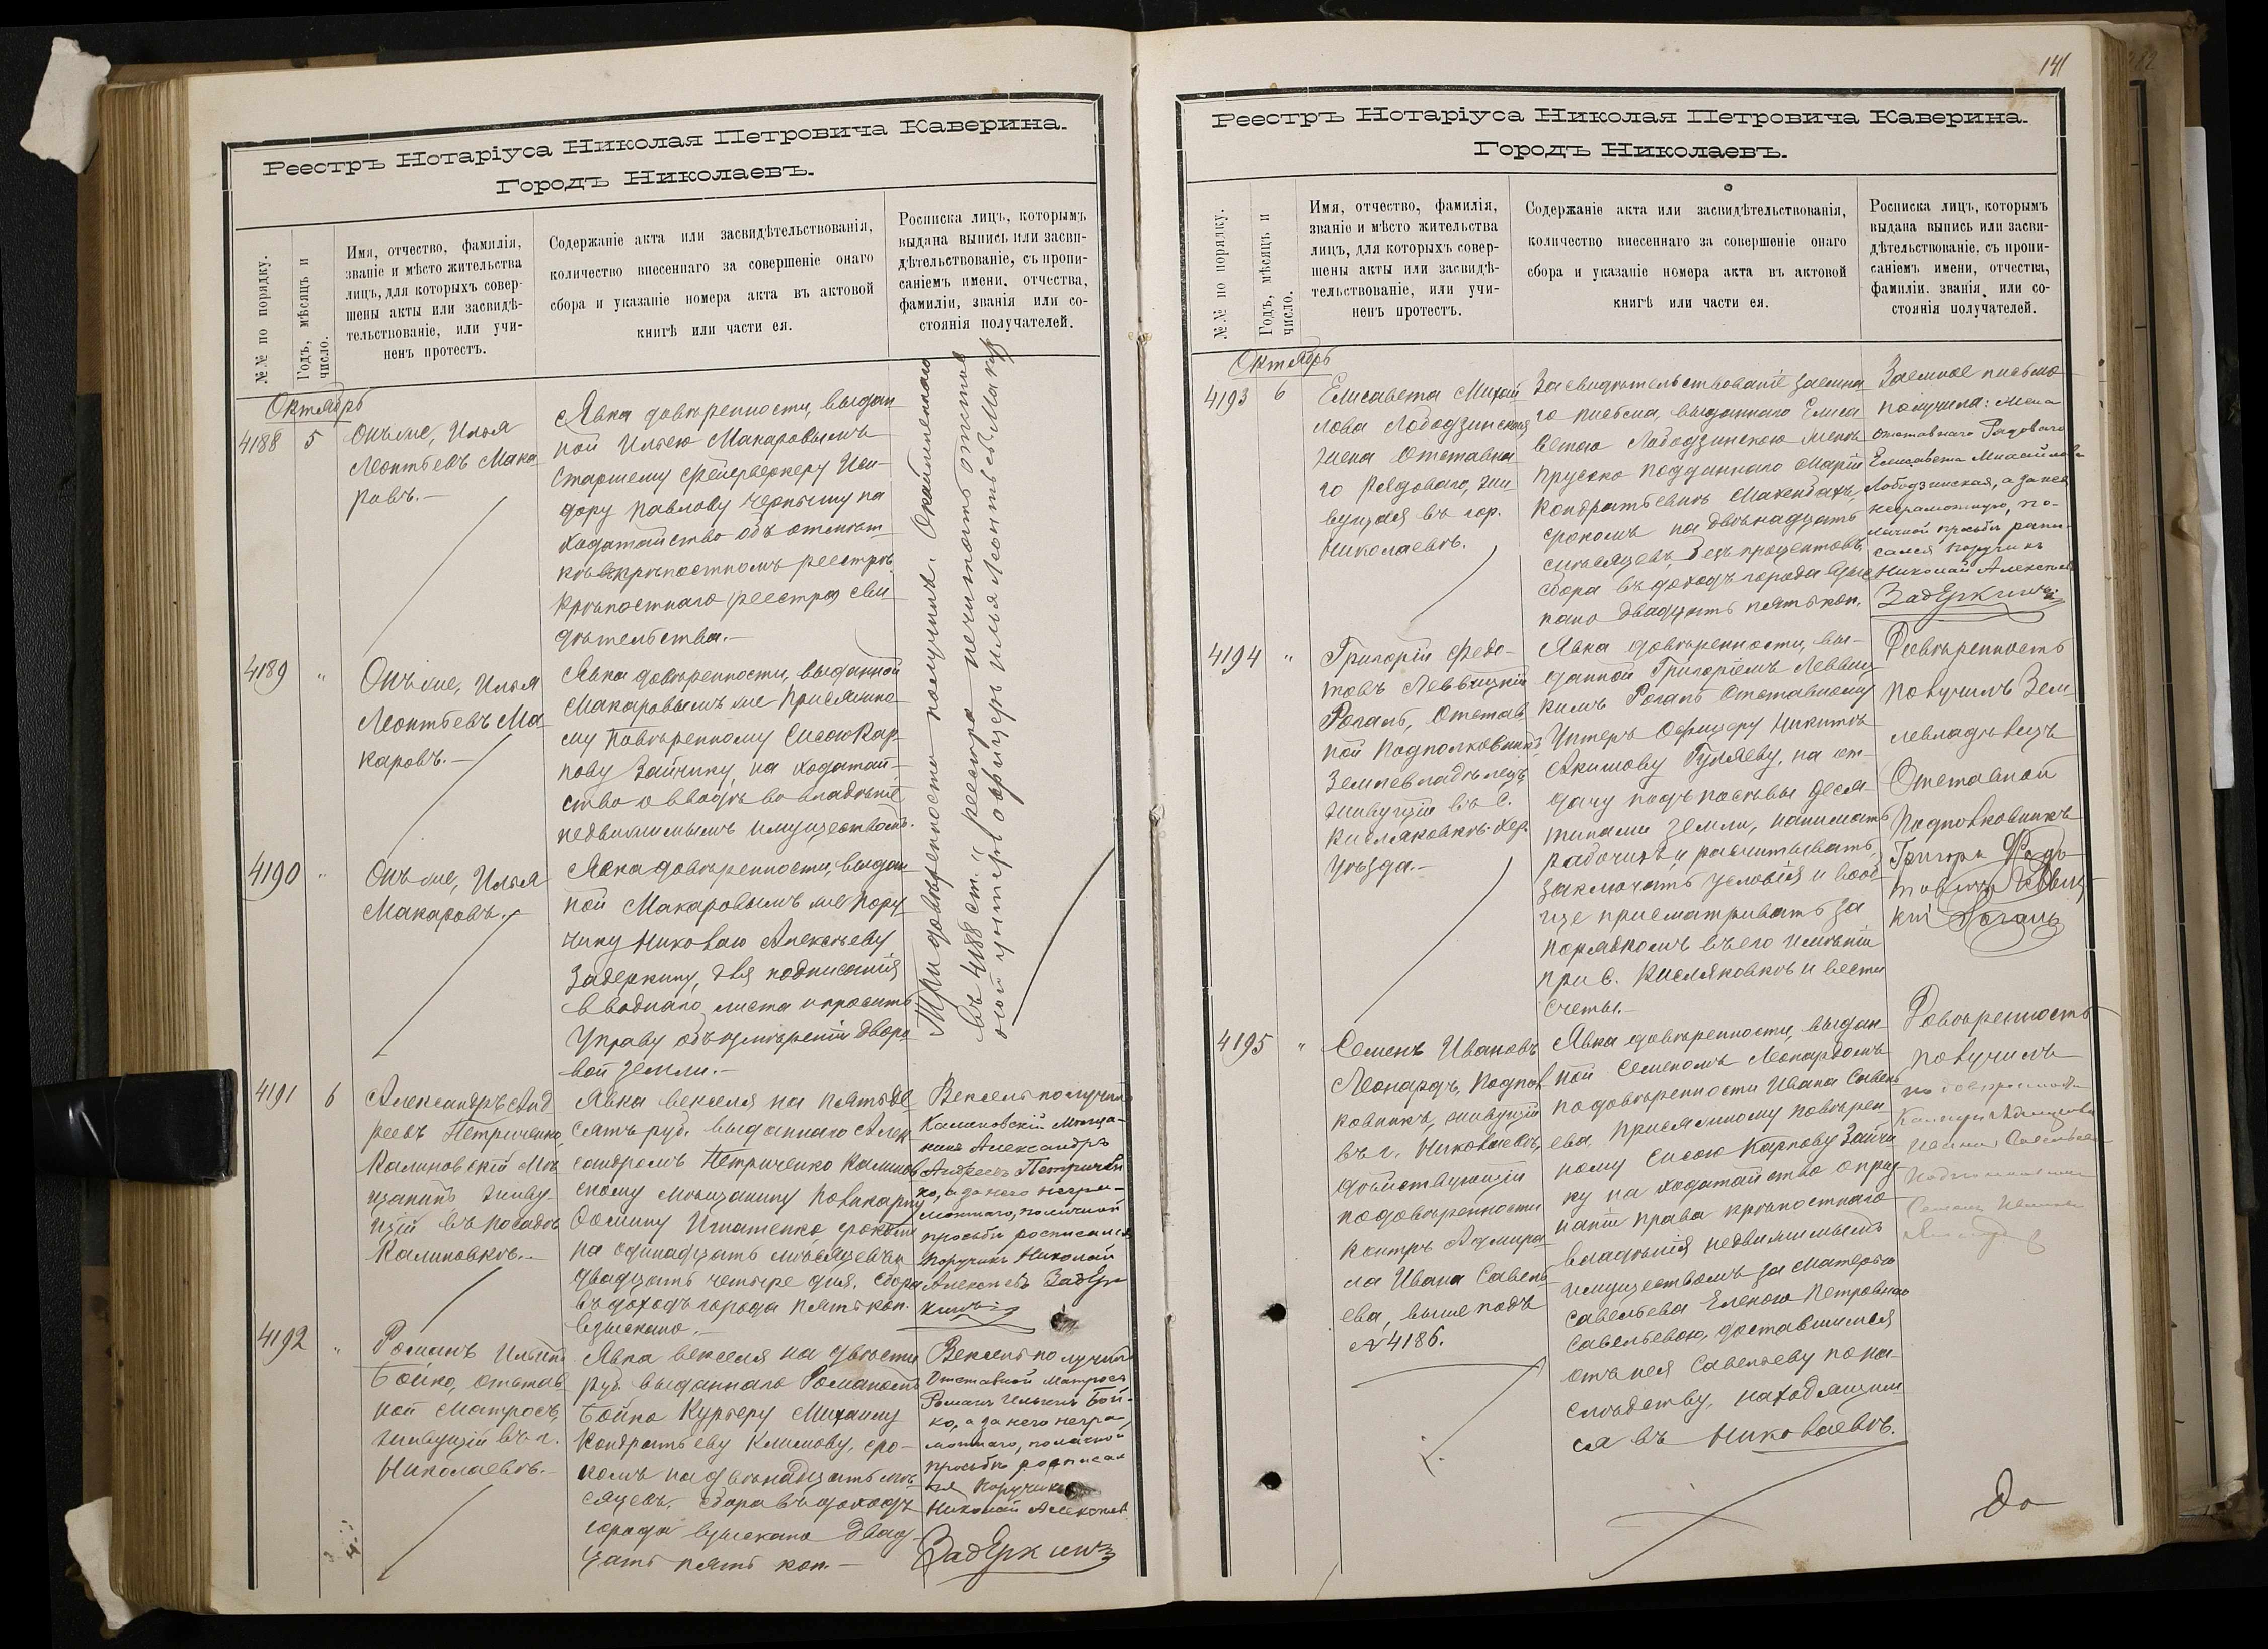 Реестръ Нотаріуса Николая Петровича Каверина.
Городъ Николаевъ.
№№ по порядку.
Годъ, мѣсяцъ и
число.
Имя, отчество, фамилія,
званіе и мѣсто жительства
лицъ, для которыхъ совер-
шены акты или засвидѣ-
тельствованіе, или учи-
ненъ протестъ.
Содержаніе акта или засвидѣтельствованія,
количество внесеннаго за совершеніе онаго
сбора и указаніе номера акта въ актовой
книгѣ или части ея.
Росписка лицъ, которымъ
выдана выпись или засви-
дѣтельствованіе, съ пропи-
саніемъ имени, отчества,
фамиліи, званія или со-
стоянія получателей.
Октябрь
4188 5
Онъ же, Илья
Леонтьевъ Мака-
ровъ.-
Явка довѣренности, выдан
ной Ильею Макаровымъ
старшему фейерверкеру Иси-
дору Павлову Черному на
ходатайство объ отмѣт
кѣ въ крѣпостномъ реестрѣ
крѣпостнаго реестра сви
дѣтельства.-
4189 "
Онъ же, Илья
Леонтьевъ Ма
каровъ.-
Явка довѣренности, выданной
Макаровымъ же Присяжно
му Повѣренному Сысою Кар
пову Зайчику, на ходатай-
ство о вводѣ во владѣніе
недвижимымъ имуществомъ.
4190 "
Онъ же, Илья
Макаровъ.-
Явка довѣренности, выдан
ной Макаровымъ же Пору
чику Николаю Алексѣеву
Задеркину, для подписанія
вводнаго листа и просить
Управу объ измѣреніи дворо
вой земли.-
Три довѣренности получилъ. Окайменнаго
въ 4188 ст." реестра нечитать отстав
ной унтеръ офицеръ Илья Леонтьевъ Макар
4191 6
Александръ Анд
реевъ Петриченко,
Калиновскій Мѣ
щанинъ живу-
щій въ посадѣ
Калиновкѣ.-
Явка векселя на пятьде
сятъ руб. выданнаго Алек
сандромъ Петриченко Калинов
скому мѣщанину Поликарпу
Фомину Игнатенко, срокомъ
на одинадцать мѣсяцевъ и
двадцать четыре дня. Сбора
въ доходъ города пять коп.
взыскано.-
Вексель получилъ
Калиновскій Мѣща-
нинъ Александръ
Андреевъ Петричен
ко, а за него негра-
мотнаго, по личной
просьбѣ росписался
Поручикъ Николай
Алексѣевъ Задер
кинъ
4192 "
Романъ Ильинъ
Бойко, отстав
ной матросъ,
живущій въ г.
Николаевѣ.-
Явка векселя на двѣсти
руб. выданнаго Романомъ
Бойко Курьеру Михаилу
Кондратьеву Климову, сро-
комъ на двѣнадцать мѣ
сяцевъ. Сбора въ доходъ
города взыскано двад
цать пять коп.-
Вексель получилъ
Отставной Матросъ
Романъ Ильинъ Бой-
ко, а за него негра-
мотнаго, по личной
просьбѣ росписал
ся Поручикъ
Николай Алексѣев
Задеркинъ
141
Реестръ Нотаріуса Николая Петровича Каверина.
Городъ Николаевъ.
№№ по порядку.
Годъ, мѣсяцъ и
число.
Имя, отчество, фамилія,
званіе и мѣсто жительства
лицъ, для которыхъ совер-
шены акты или засвидѣ-
тельствованіе, или учи-
ненъ протестъ.
Содержаніе акта или засвидѣтельствованія,
количество внесеннаго за совершеніе онаго
сбора и указаніе номера акта въ актовой
книгѣ или части ея.
Росписка лицъ, которымъ
выдана выпись или засви-
дѣтельствованіе, съ пропи-
саніемъ имени, отчества,
фамиліи, званія или со-
стоянія получателей.
Октябрь
4193 6
Елисавета Михай
лова Лободзинская
жена Отставна
го Рядоваго, жи
вущая въ гор.
Николаевѣ.
Засвидѣтельствованіе заемна
го письма, выданнаго Елиса
ветою Лободзинскою женѣ
прусско подданнаго Маріи
Кондратьевнѣ
срокомъ на двѣнадцать
мѣсяцевъ, безъ процентовъ,
сбора въ доходъ города взыс
кано двадцать пять коп.
Заемное письмо
получила: жена
отставнаго Рядоваго
Елисавета Михайлова
Лободзинская, а за нея
неграмотную, по-
личной просьбѣ распи-
сался Поручикъ
Николай Алексѣев
Задеркинъ
4194 "
Григорій Федо-
товъ Леввицкій
Рогань, Отстав
ной Подполковникъ
Землевладѣлецъ
живущій въ с.
Кисляковкѣ Хер.
уѣзда.-
Явка довѣренности, вы-
данной Григоріемъ Леввиц
кимъ Рогань Отставному
Унтеръ Офицеру Никитѣ
Акимову Гуляеву, на от-
дачу подъ посѣвы деся-
тинами земли, нанимать
рабочихъ и расчитывать,
заключать условія и вооб
ще присматривать за
порядкомъ въ его имѣніи
при с. Кисляковкѣ и вести
счеты.-
Довѣренность
получилъ Зем-
левладѣлецъ
Отставной
Подполковникъ
Григорій Федо
товъ Леввиц-
кій Рогань
4195 "
Семенъ Ивановъ
Леонардъ, Подпол
ковникъ, живущій
въ г. Николаевѣ,
дѣйствующій
по довѣренности
Контръ Адмира
ла Ивана Савель
ева, выше подъ
№4186.
Явка довѣренности, выдан-
ной Семеномъ Леонардомъ
по довѣренности Ивана Савель
ева, присяжному повѣрен-
ному Сысою Карпову Зайчи
ку на ходатайство о приз
наніи права крѣпостнаго
владѣнія недвижимымъ
имуществомъ за матерью
Савельева Еленою Петровною
Савельевою, доставшимся
отъ нея Савельеву по на-
слѣдству, находящим
ся въ Николаевѣ.
Довѣренность
получилъ
по довѣренности
Контръ Адмирала
Ивана Савельева
Подполковникъ
Семенъ Ивановъ
Леонардъ
До